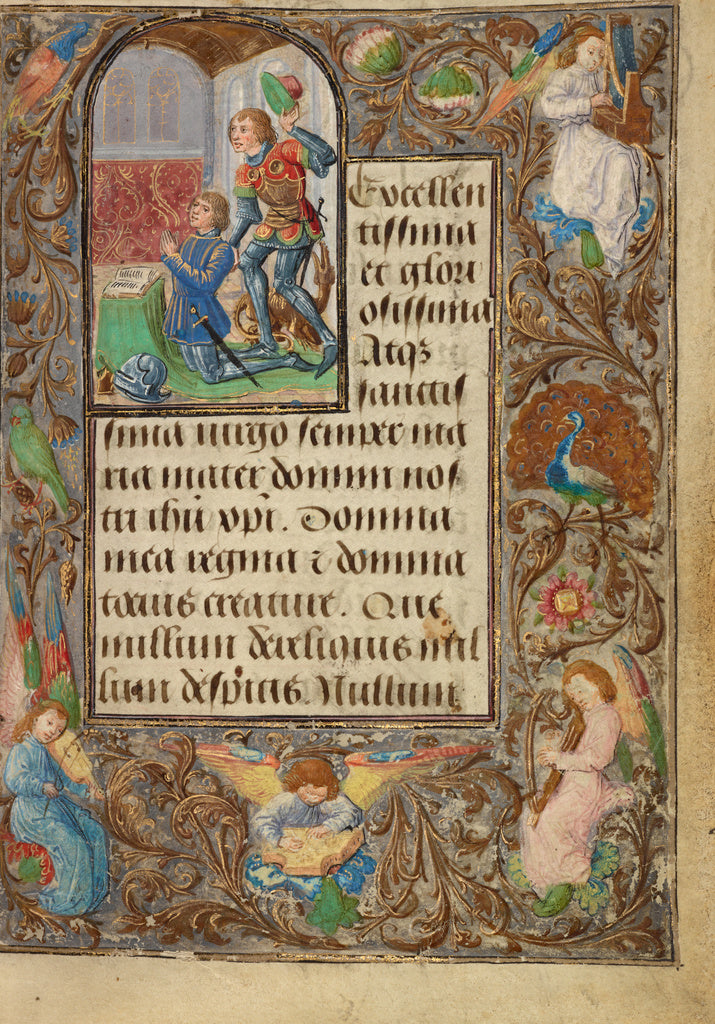 Excellen
tissima
et glori
osissima
Atqꝫ
sanctis
sima uirgo semper ma
ria mater domini nos
tri ihū xp̄i. Domina
mea regina ⁊ domina
tocius creature. Que
nullum dereliquis nul
lum despicis. Nullum